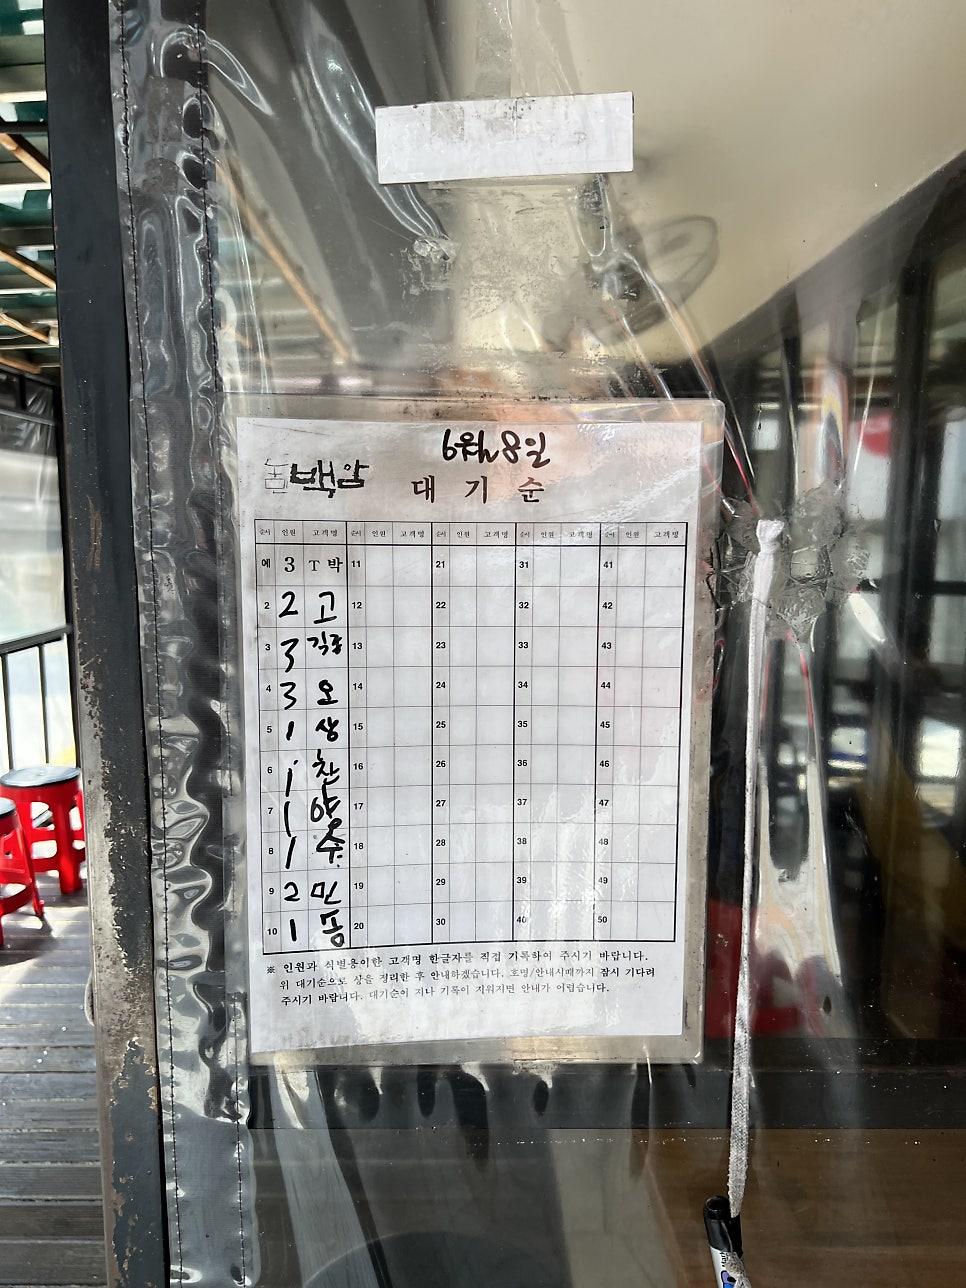 6월 8일
백암
대 기 순
순서 인원 고객명 순서 인원 고객명 순서 인원 고객명 순서 인원 고객명 순서 인원 고객명
예 3 T 박 11 21 31 41
2 2 고 12 22 32 42
3 3 13 23 33 43
4 3 오 14 24 34 44
5 1 상 15 25 35 45
6 1 찬 16 26 36 46
7 1 양 17 27 37 47
8 1 주 18 28 38 48
9 2 민 19 29 39 49
10 1 20 30 40 50
※ 인원과 식별용이한 고객명 한글자를 직접 기록하여 주시기 바랍니다.
위 대기순으로 상을 정리한 후 안내하겠습니다. 호명/안내시때까지 잠시 기다려
주시기 바랍니다. 대기순이 지나 기록이 지워지면 안내가 어렵습니다.